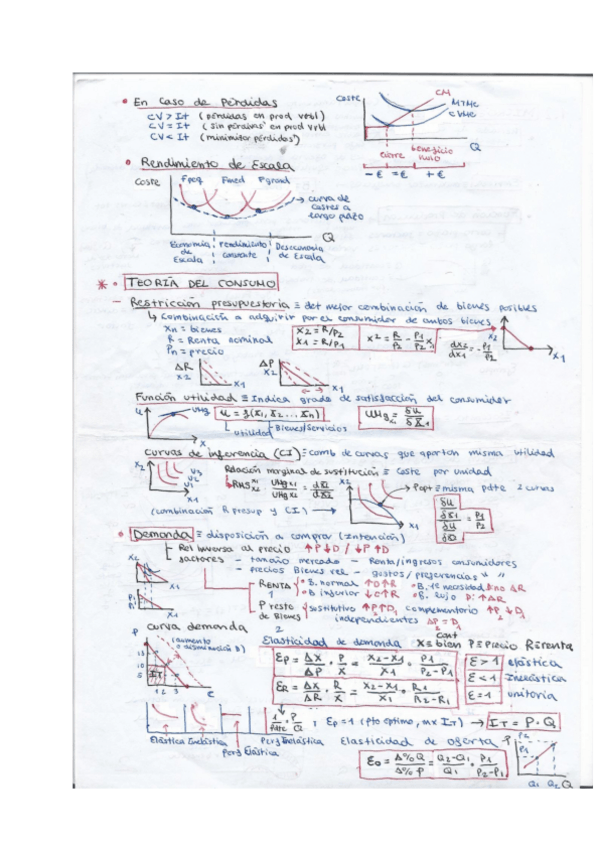 • En Caso de Pérdidas
CV > It (pérdidas en prod vrbl)
CV = It (sin pérdidas en prod vrbl)
CV < It (minimizar pérdidas)
Coste
CM
Q
cierre
beneficio nulo
- € = € + €
• Rendimiento de Escala
Coste
Fpeq Fmed Fgrand
curva de costes a largo plazo
Q
Economía de Escala
rendimiento constante
Deseconomía de Escala
* • TEORÍA DEL CONSUMO
- Restricción presupuestaria ≡ det mejor combinación de bienes posibles
↳ Combinación a adquirir por el consumidor de ambos bienes
Xn = bienes
R = Renta nominal
Pn = precio
X2 = R/P2
X1 = R/P1
X2 = R/P2 - P1/P2 X1
dX2/dX1 = - P1/P2
X2
X1
ΔR
X2
X1
ΔP
X2
X1
Función utilidad ≡ Indica grado de satisfacción del consumidor
U
UMg
X
U = f(X1, X2 ... Xn)
utilidad
Bienes/Servicios
Curvas de inferencia (CI) ≡ comb de curvas que aportan misma utilidad
X2
U3
U2
U1
X1
Relación marginal de sustitución ≡ Coste por unidad
(combinación R presup y CI)
X2
X1
Popt ≡ misma pdte 2 curvas
• Demanda ≡ disposición a comprar (Intención)
Rel Inversa al precio ↑P ↓D / ↓P ↑D
factores - tamaño mercado - Renta/ingresos consumidores
- precios Bienes rel - gustos/preferencias " "
X2
X1
P1
X1
RENTA
1
B. normal ↑D ↑R
B. inferior ↓D ↑R
B. 1e necesidad no ΔR
B. lujo D: ↑ΔR
P resto de Bienes
2
sustitutivo ↑P ↑D1
complementario ↑P2 ↓D1
independientes
curva demanda
P
(aumento o disminución D)
15
10
5
IT
1 2 3
C
Elasticidad de demanda
cant
X ≡ bien P ≡ Precio R ≡ renta
EP = ΔX/ΔP · P/X = X2-X1/X1 · P1/P2-P1
ER = ΔX/ΔR · R/X = X2-X1/X1 · R1/R2-R1
E > 1 elástica
E < 1 Inelástica
E = 1 unitaria
Elástica Inelástica
Perf Elástica
Perf Inelástica
1/pdte · P/Q
EP = 1 (pto optimo, mx IT) → IT = P · Q
Elasticidad de oferta
EO = Δ%Q/Δ%P = Q2-Q1/Q1 · P1/P2-P1
P
P2
P1
Q1 Q2 Q